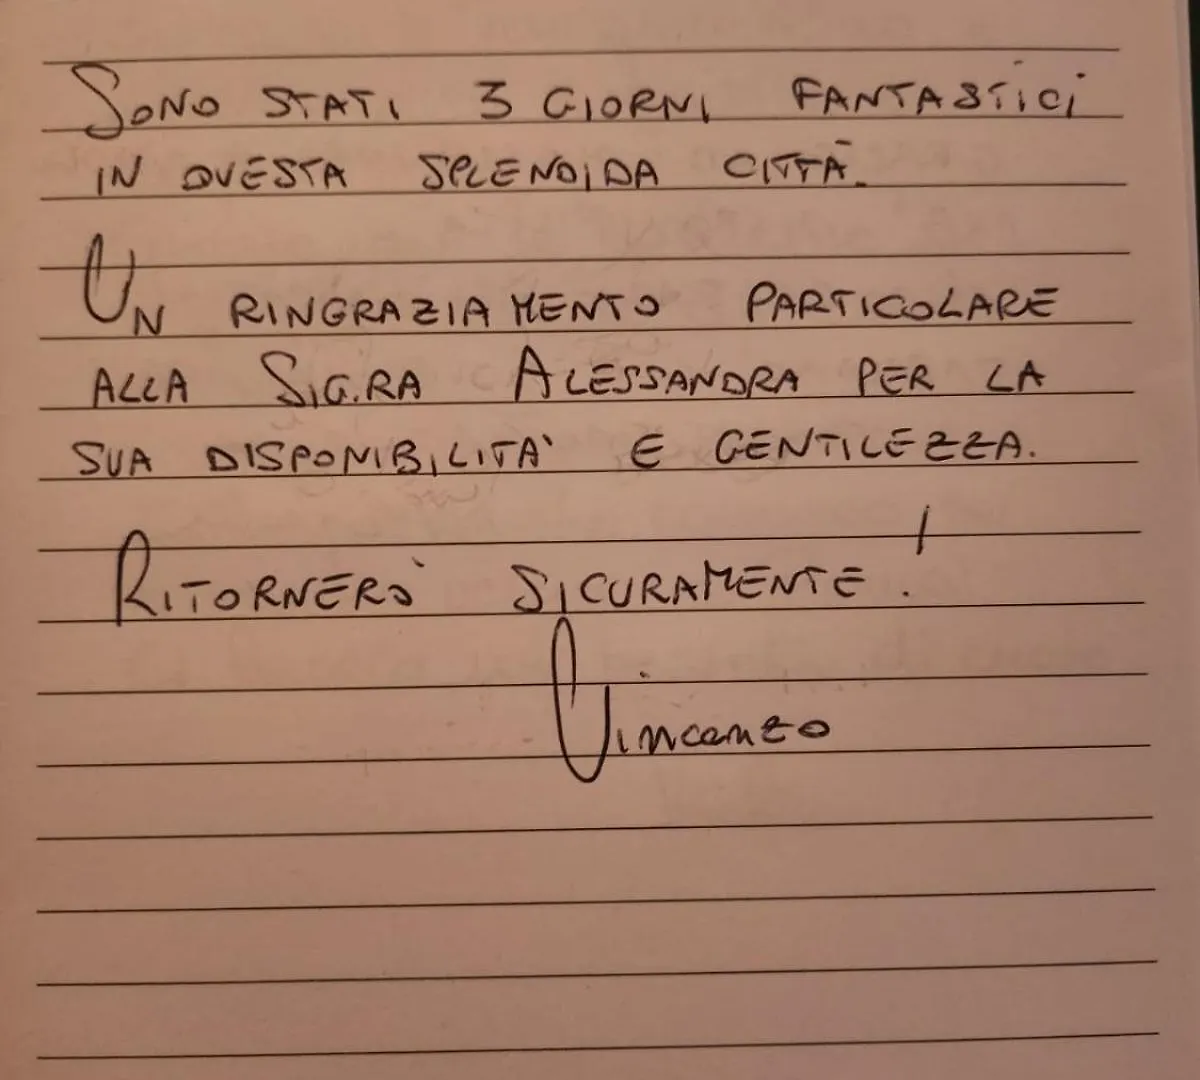 SONO STATI 3 GIORNI FANTASTICI
IN QUESTA SPLENDIDA CITTÀ.
UN RINGRAZIAMENTO PARTICOLARE
ALLA SIG.RA ALESSANDRA PER LA
SUA DISPONIBILITA' E GENTILEZZA.
RITORNERÒ SICURAMENTE!
Vincenzo